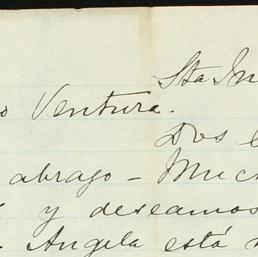 Sta In
o Ventura.
Dos
abrazo - Much
y deseamos
Angela está